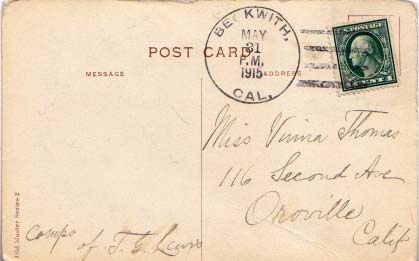 BECKWITH,
MAY
31
P.M.
1915
CAL.
U.S. POSTAGE
1 CENT 1
POST CARD
MESSAGE
ADDRESS
Miss Vinna Thomas
116 Second Ave
Oroville
Calif
Compo
of T. G. Lewis
Old Master Series 2